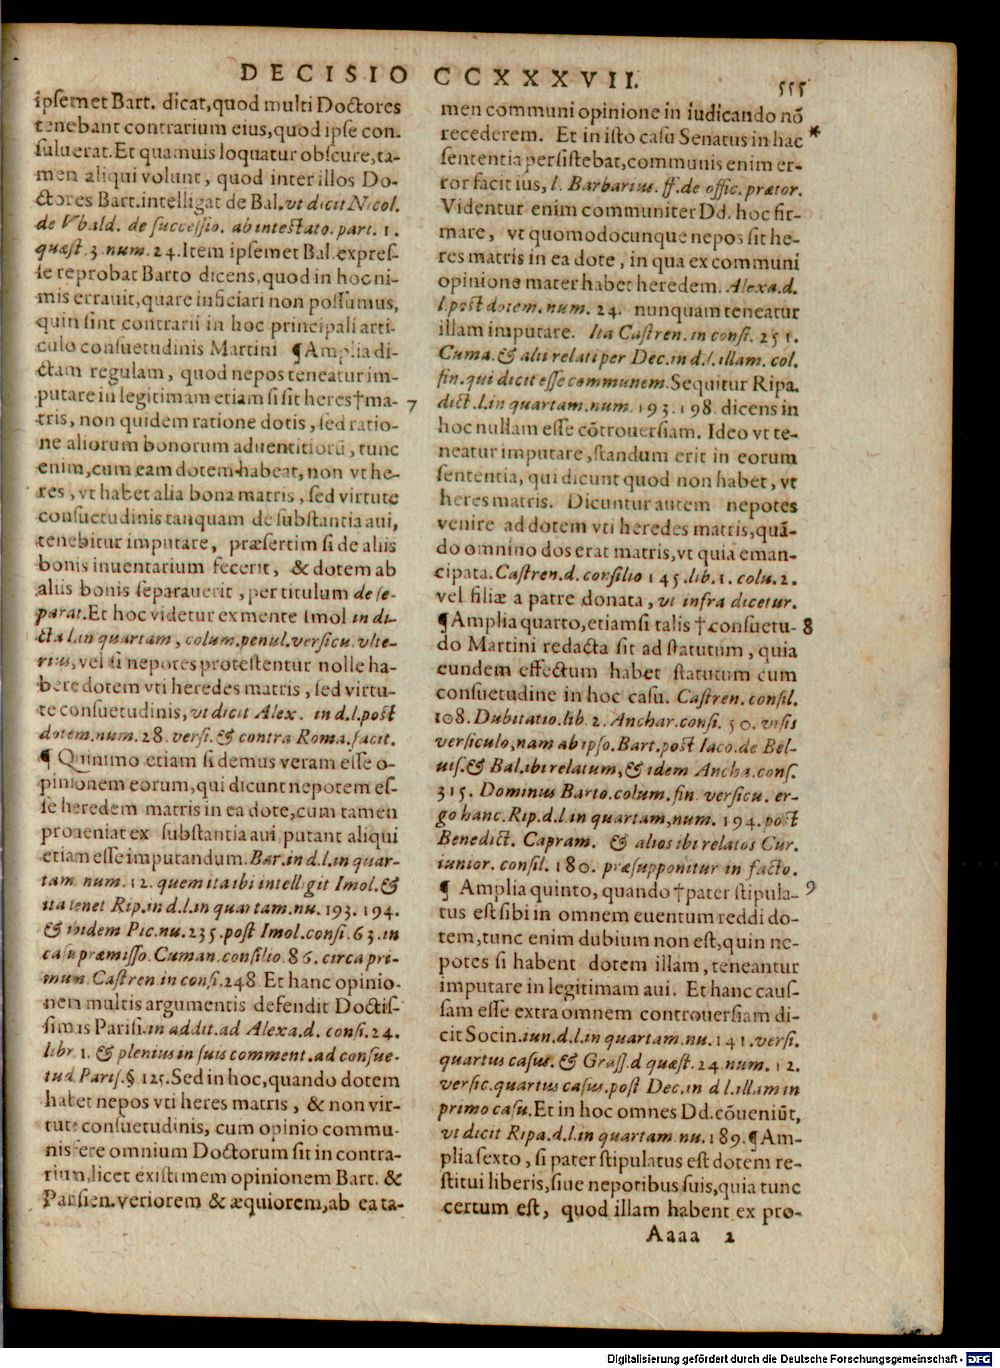 DECISIO CCXXXVII. 555
ipsemet Bart. dicat, quod multi Doctores
tenebant contrarium eius, quod ipse con-
suluerat. Et quamuis loquatur obscure, ta-
men aliqui volunt, quod inter illos Do-
ctores Bart. intelligat de Bal. vt dicit Nicol.
de Vbald. de successio. ab intestato. part. 1.
quæst. 3. num. 24. Item ipsemet Bal. expres-
se reprobat Barto dicens, quod in hoc ni-
mis errauit, quare inficiari non possumus,
quin sint contrarii in hoc principali arti-
culo consuetudinis Martini ¶ Amplia di-
ctam regulam, quod nepos teneatur im-
putare in legitimam etiam si sit heres † ma- 7
tris, non quidem ratione dotis, sed ratio-
ne aliorum bonorum aduentitiorũ, tunc
enim, cum eam dotem habeat, non vt he-
res, vt habet alia bona matris, sed virtute
consuetudinis tanquam de substantia aui,
tenebitur imputare, præsertim si de aliis
bonis inuentarium fecerit, & dotem ab
aliis bonis separauerit, per titulum de se-
parat. Et hoc videtur ex mente Imol in di-
cta l. in quartam, colum. penul. versicu. vlte-
rius, vel si nepotes protestentur nolle ha-
bere dotem vti heredes matris, sed virtu-
te consuetudinis, vt dicit Alex. in d. l. post
dotem. num. 28. versi. & contra Roma. facit.
¶ Quinimo etiam si demus veram esse o-
pinionem eorum, qui dicunt nepotem es-
se heredem matris in ea dote, cum tamen
proueniat ex substantia aui putant aliqui
etiam esse imputandum. Bar. in d. l. in quar-
tam num. 12. quem ita ibi intelligit Imol. &
ita tenet Rip. in d. l. in quartam. nu. 193. 194.
& ibidem Pic. nu. 235. post Imol. consi. 63. in
casu præmisso. Cuman. consilio. 86. circa pri-
mum. Castren in consi. 248 Et hanc opinio-
nem multis argumentis defendit Doctis-
simus Parisi. in addit. ad Alexa. d. consi. 24.
libr. 1. & plenius in suis comment. ad consue-
tud Paris. § 125. Sed in hoc, quando dotem
habet nepos vti heres matris, & non vir-
tute consuetudinis, cum opinio commu-
nis fere omnium Doctorum sit in contra-
rium, licet existimem opinionem Bart. &
Parisien. veriorem & æquiorem, ab ea ta-
men communi opinione in iudicando nõ
recederem. Et in isto casu Senatus in hac *
sententia persistebat, communis enim er-
ror facit ius, l. Barbarius. ff. de offic. prætor.
Videntur enim communiter Dd. hoc fir-
mare, vt quomodocunque nepos sit he-
res matris in ea dote, in qua ex communi
opinione mater habet heredem. Alexa. d.
l. post dotem. num. 24. nunquam teneatur
illam imputare. Ita Castren. in consi. 251.
Cuma. & alii relati per Dec. in d. l. illam. col.
fin. qui dicit esse communem. Sequitur Ripa.
dict. l. in quartam. num. 193. 198 dicens in
hoc nullam esse cõtrouersiam. Ideo vt te-
neatur imputare, standum erit in eorum
sententia, qui dicunt quod non habet, vt
heres matris. Dicuntur autem nepotes
venire ad dotem vti heredes matris, quã-
do omnino dos erat matris, vt quia eman-
cipata. Castren. d. consilio 145. lib. 1. colu. 2.
vel filiæ a patre donata, vt infra dicetur.
¶ Amplia quarto, etiamsi talis † consuetu- 8
do Martini redacta sit ad statutum, quia
eundem effectum habet statutum cum
consuetudine in hoc casu. Castren. consil.
108. Dubitatio. lib. 2. Anchar. consi. 50. visis
versiculo, nam ab ipso. Bart. post Iaco. de Bel-
uis. & Bal. ibi relatum, & idem Ancha. cons.
315. Dominus Barto. colum. fin. versicu. er-
go hanc. Rip. d. l. in quartam, num. 194. post
Benedict. Capram. & alios ibi relatos Cur.
iunior. consil. 180. præsupponitur in facto.
¶ Amplia quinto, quando † pater stipula- 9
tus est sibi in omnem euentum reddi do-
tem, tunc enim dubium non est, quin ne-
potes si habent dotem illam, teneantur
imputare in legitimam aui. Et hanc caus-
sam esse extra omnem controuersiam di-
cit Socin. iun. d. l. in quartam. nu. 141. versi.
quartus casus. & Grass. d quæst. 24. num. 12.
versic. quartus casus. post Dec. in d l. illam in
primo casu. Et in hoc omnes Dd. cõueniũt,
vt dicit Ripa. d. l. in quartam. nu. 189. ¶ Am-
plia sexto, si pater stipulatus est dotem re-
stitui liberis, siue nepotibus suis, quia tunc
certum est, quod illam habent ex pro-
Aaaa 2
Digitalisierung gefördert durch die Deutsche Forschungsgemeinschaft - DFG